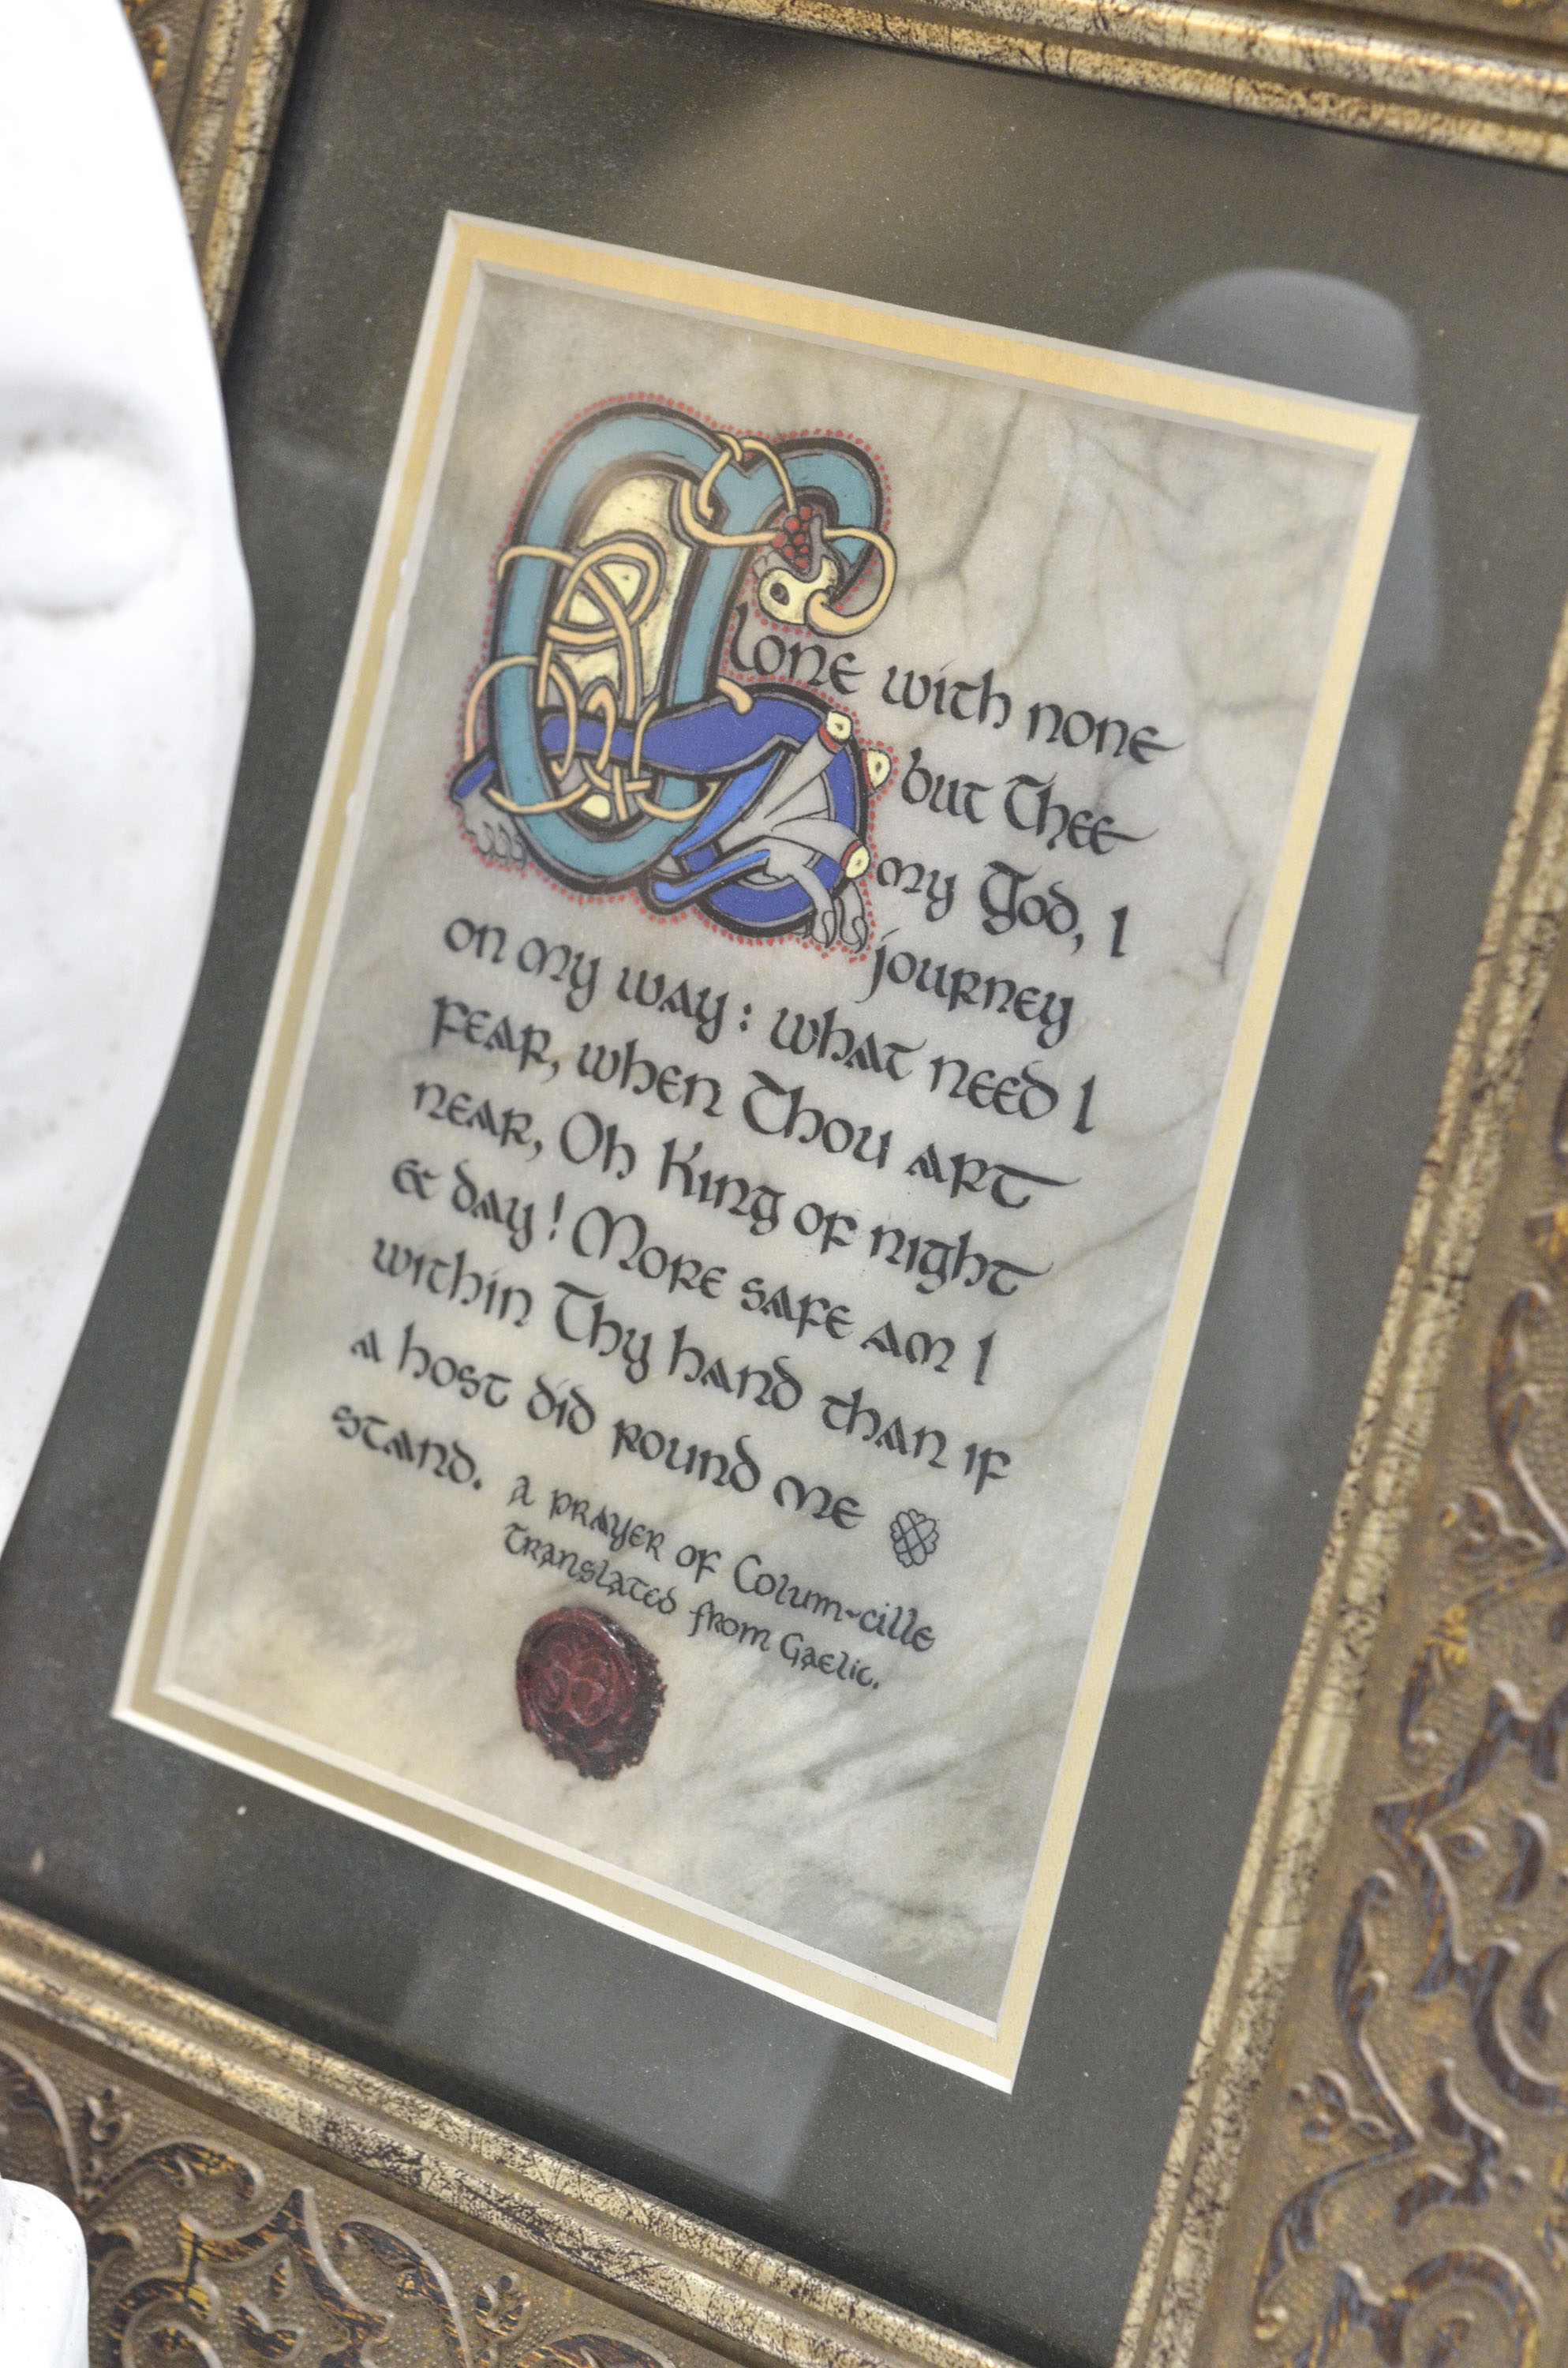 Alone with none
but Thee
my God, I
journey
on my way: what need I
fear, when Thou art
near, Oh King of night
& day! More safe am I
within Thy hand than if
a host did round me
stand.
A prayer of Colum-cille
Translated from Gaelic.